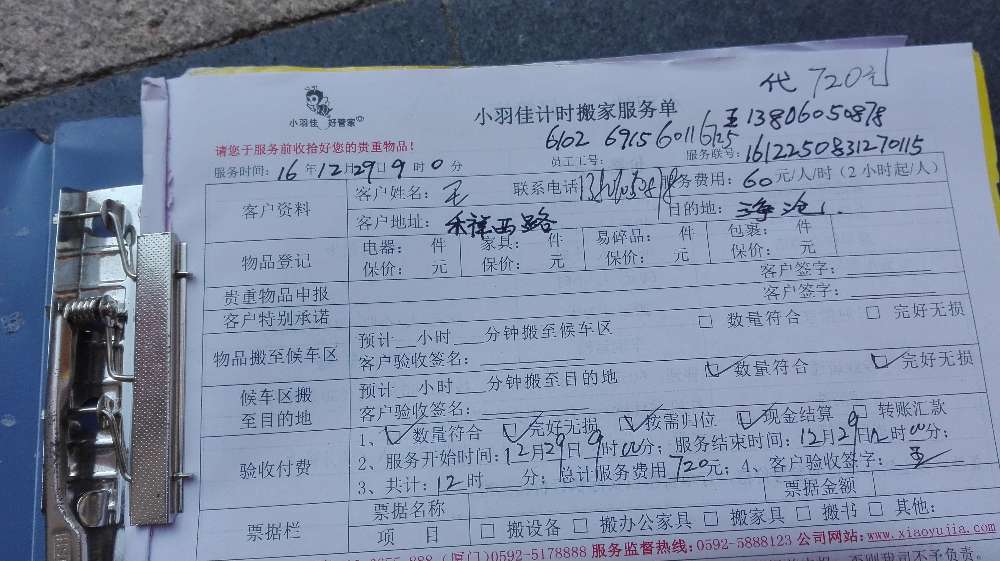 代 720元
小羽佳 好管家
小羽佳计时搬家服务单
王 13806050878
请您于服务前收拾好您的贵重物品!
6102 6915 6011 6125
服务时间: 16 年 12 月 29 日 9 时 0 分 员工工号: 服务联号: 1612250831270115
客户资料 客户姓名: 王 联系电话 服务费用: 60 元/人/时 (2小时起/人)
客户地址: 禾祥西路 目的地: 海沧
物品登记 电器: 件 家具: 件 易碎品: 件 包裹: 件
保价: 元 保价: 元 保价: 元 保价: 元
贵重物品申报 客户签字:
客户特别承诺 客户签字:
物品搬至候车区 预计__小时___分钟搬至候车区 □ 数量符合 □ 完好无损
客户验收签名:
候车区搬至目的地 预计__小时___分钟搬至目的地 ☑ 数量符合 ☑ 完好无损
客户验收签名:
验收付费 1、☑ 数量符合 ☑ 完好无损 ☑ 按需归位 ☑ 现金结算 □ 转账汇款
2、服务开始时间: 12月29日9时00分; 服务结束时间: 12月29日12时00分;
3、共计: 12 时____分; 总计服务费用 720元; 4、客户验收签字: 王
票据栏 票据名称 票据金额
项 目 □ 搬设备 □ 搬办公家具 □ 搬家具 □ 搬书 □ 其他:
(厦门)0592-5178888 服务监督热线:0592-5888123 公司网站:www.xiaoyujia.com
否则我司不予负责。